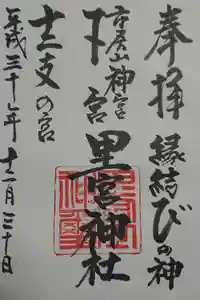 奉拝 縁結びの神
市房山神宮
下宮 里宮神社
十二支の宮
平成三十年 十一月三十日